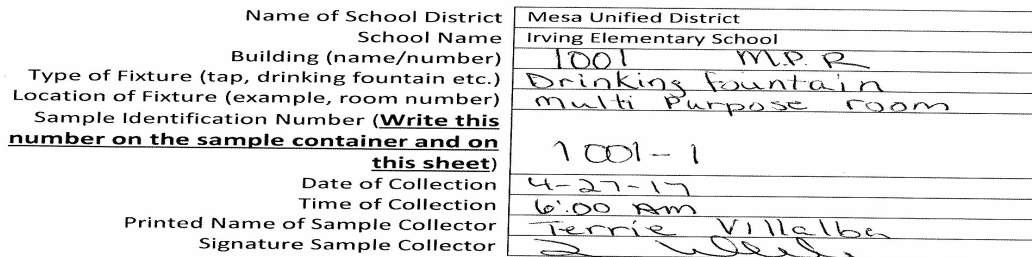 Name of School District Mesa Unified District
School Name Irving Elementary School
Building (name/number) 1001 M.P.R
Type of Fixture (tap, drinking fountain etc.) Drinking fountain
Location of Fixture (example, room number) multi Purpose room
Sample Identification Number (Write this
number on the sample container and on
this sheet) 1001-1
Date of Collection 4-27-17
Time of Collection 6:00 Am
Printed Name of Sample Collector Terrie Villalba
Signature Sample Collector